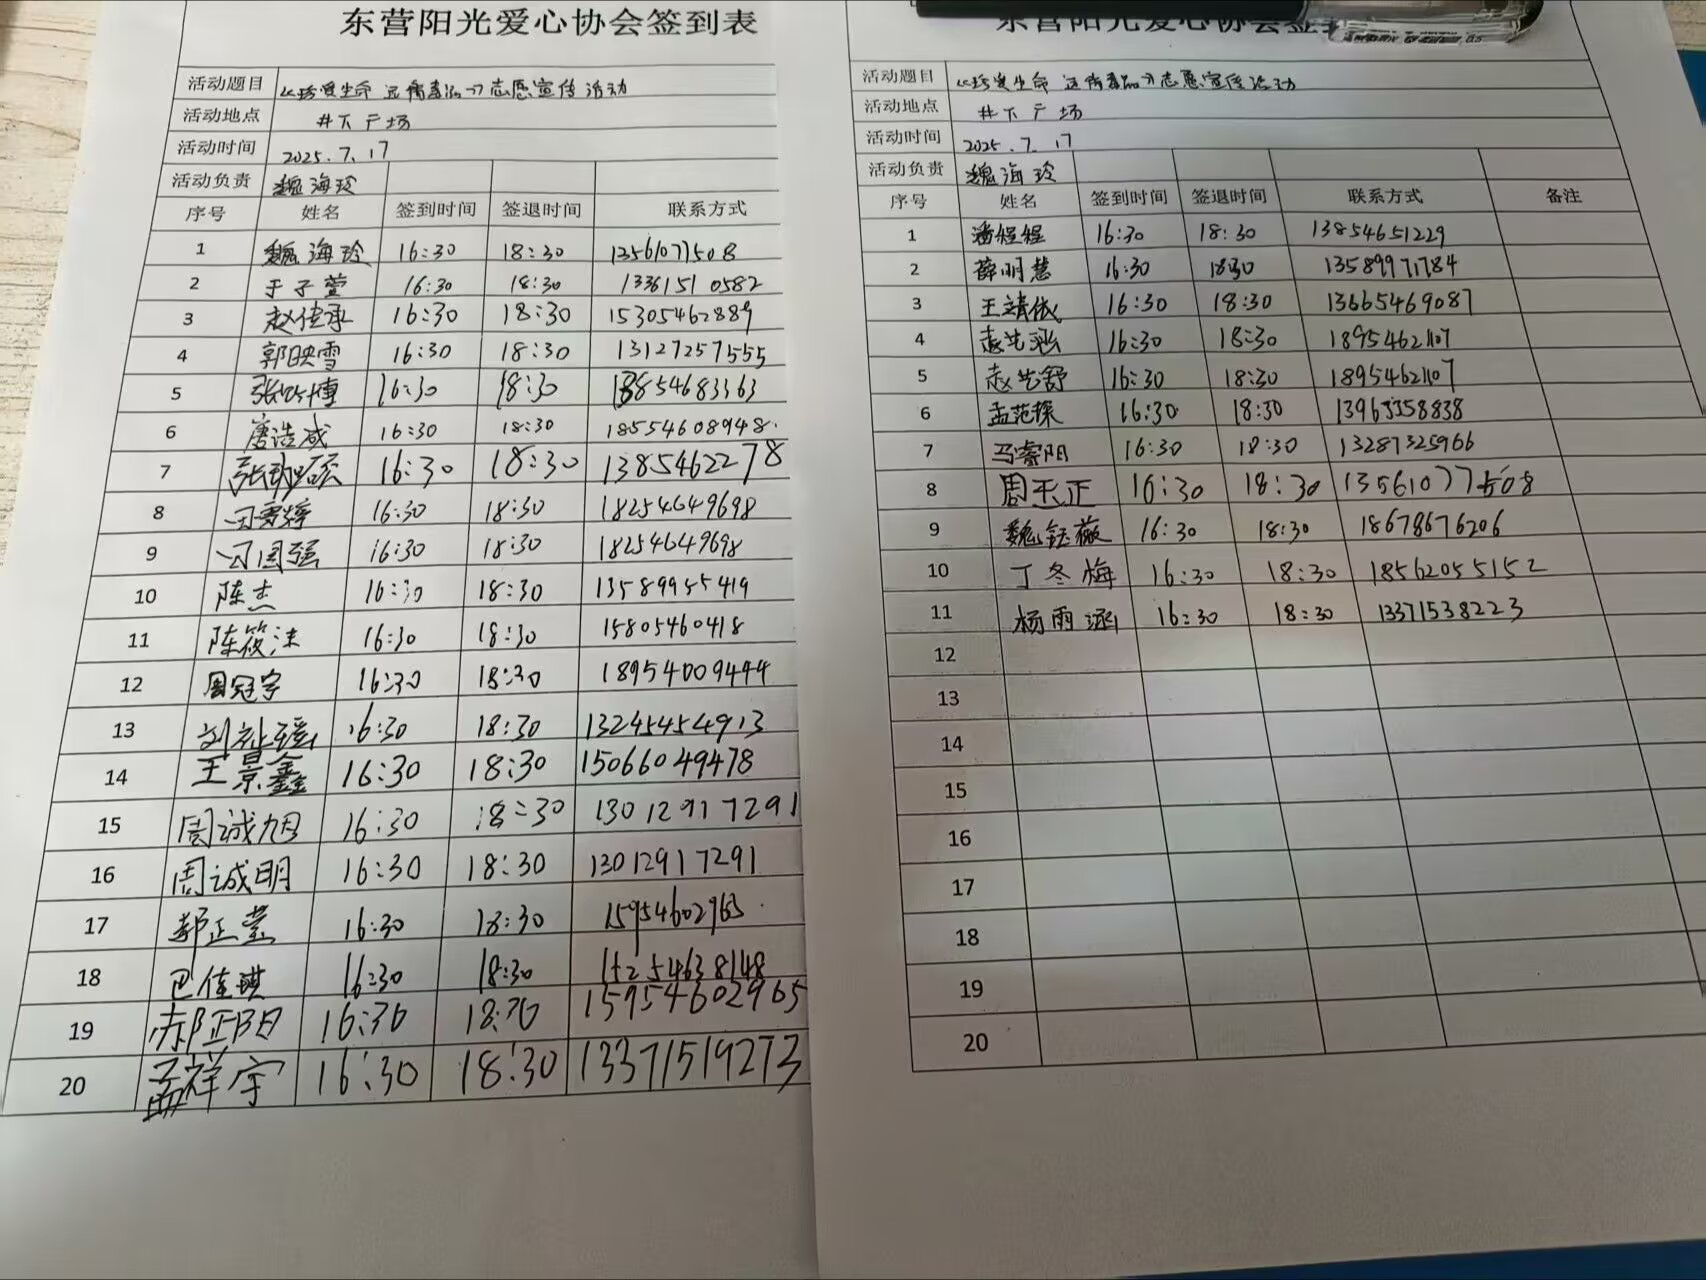 东营阳光爱心协会签到表
活动题目 “珍爱生命 远离毒品”志愿宣传活动
活动地点 井下广场
活动时间 2025.7.17
活动负责 魏海玲
序号 姓名 签到时间 签退时间 联系方式
1 魏海玲 16:30 18:30 13561077508
2 于子萱 16:30 18:30 13361510582
3 赵佳承 16:30 18:30 15305462889
4 郭映雪 16:30 18:30 13127257555
5 16:30 18:30 13854683363
6 唐浩诚 16:30 18:30 18554608948
7 16:30 18:30 13854622278
8 16:30 18:30 18254649698
9 司国强 16:30 18:30 18254649698
10 陈杰 16:30 18:30 13589955419
11 陈筱沫 16:30 18:30 15805460418
12 周冠宇 16:30 18:30 18954009444
13 16:30 18:30 13245454913
14 王景鑫 16:30 18:30 15066049478
15 周诚旭 16:30 18:30 13012917291
16 周诚明 16:30 18:30 13012917291
17 郝正莹 16:30 18:30 15954602965
18 巴佳琪 16:30 18:30 15254638148
19 郝正阳 16:30 18:30 15954602965
20 孟祥宇 16:30 18:30 13371519273
东营阳光爱心协会签
活动题目 “珍爱生命 远离毒品”志愿宣传活动
活动地点 井下广场
活动时间 2025.7.17
活动负责 魏海玲
序号 姓名 签到时间 签退时间 联系方式 备注
1 潘程程 16:30 18:30 13854651229
2 薛明慧 16:30 18:30 13589971784
3 王靖依 16:30 18:30 13665469087
4 赵艺涵 16:30 18:30 18954621107
5 赵艺舒 16:30 18:30 18954621107
6 孟范琛 16:30 18:30 13963358838
7 马睿阳 16:30 18:30 13287325966
8 周天正 16:30 18:30 13561077508
9 魏钰薇 16:30 18:30 18678676206
10 丁冬梅 16:30 18:30 18562055152
11 杨雨涵 16:30 18:30 13371538223
12
13
14
15
16
17
18
19
20